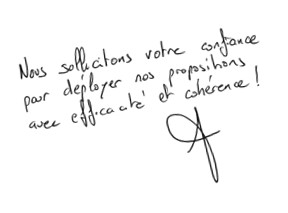 Nous sollicitons votre confiance
pour déployer nos propositions
avec efficacité et cohérence !